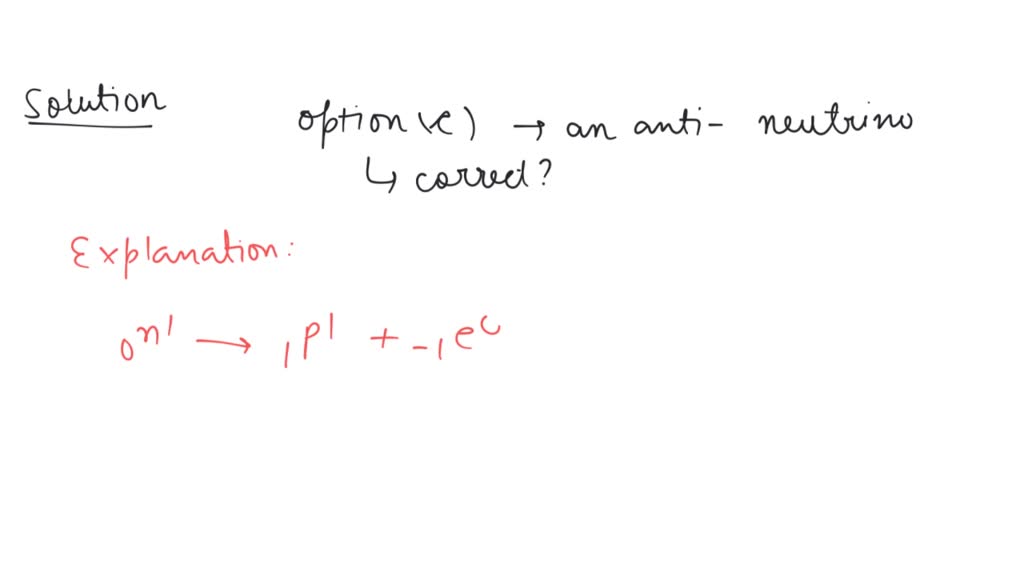 Solution option (c) → an anti- neutrino
↳ correct?
Explanation:
₀n¹ → ₁p¹ + ₋₁e